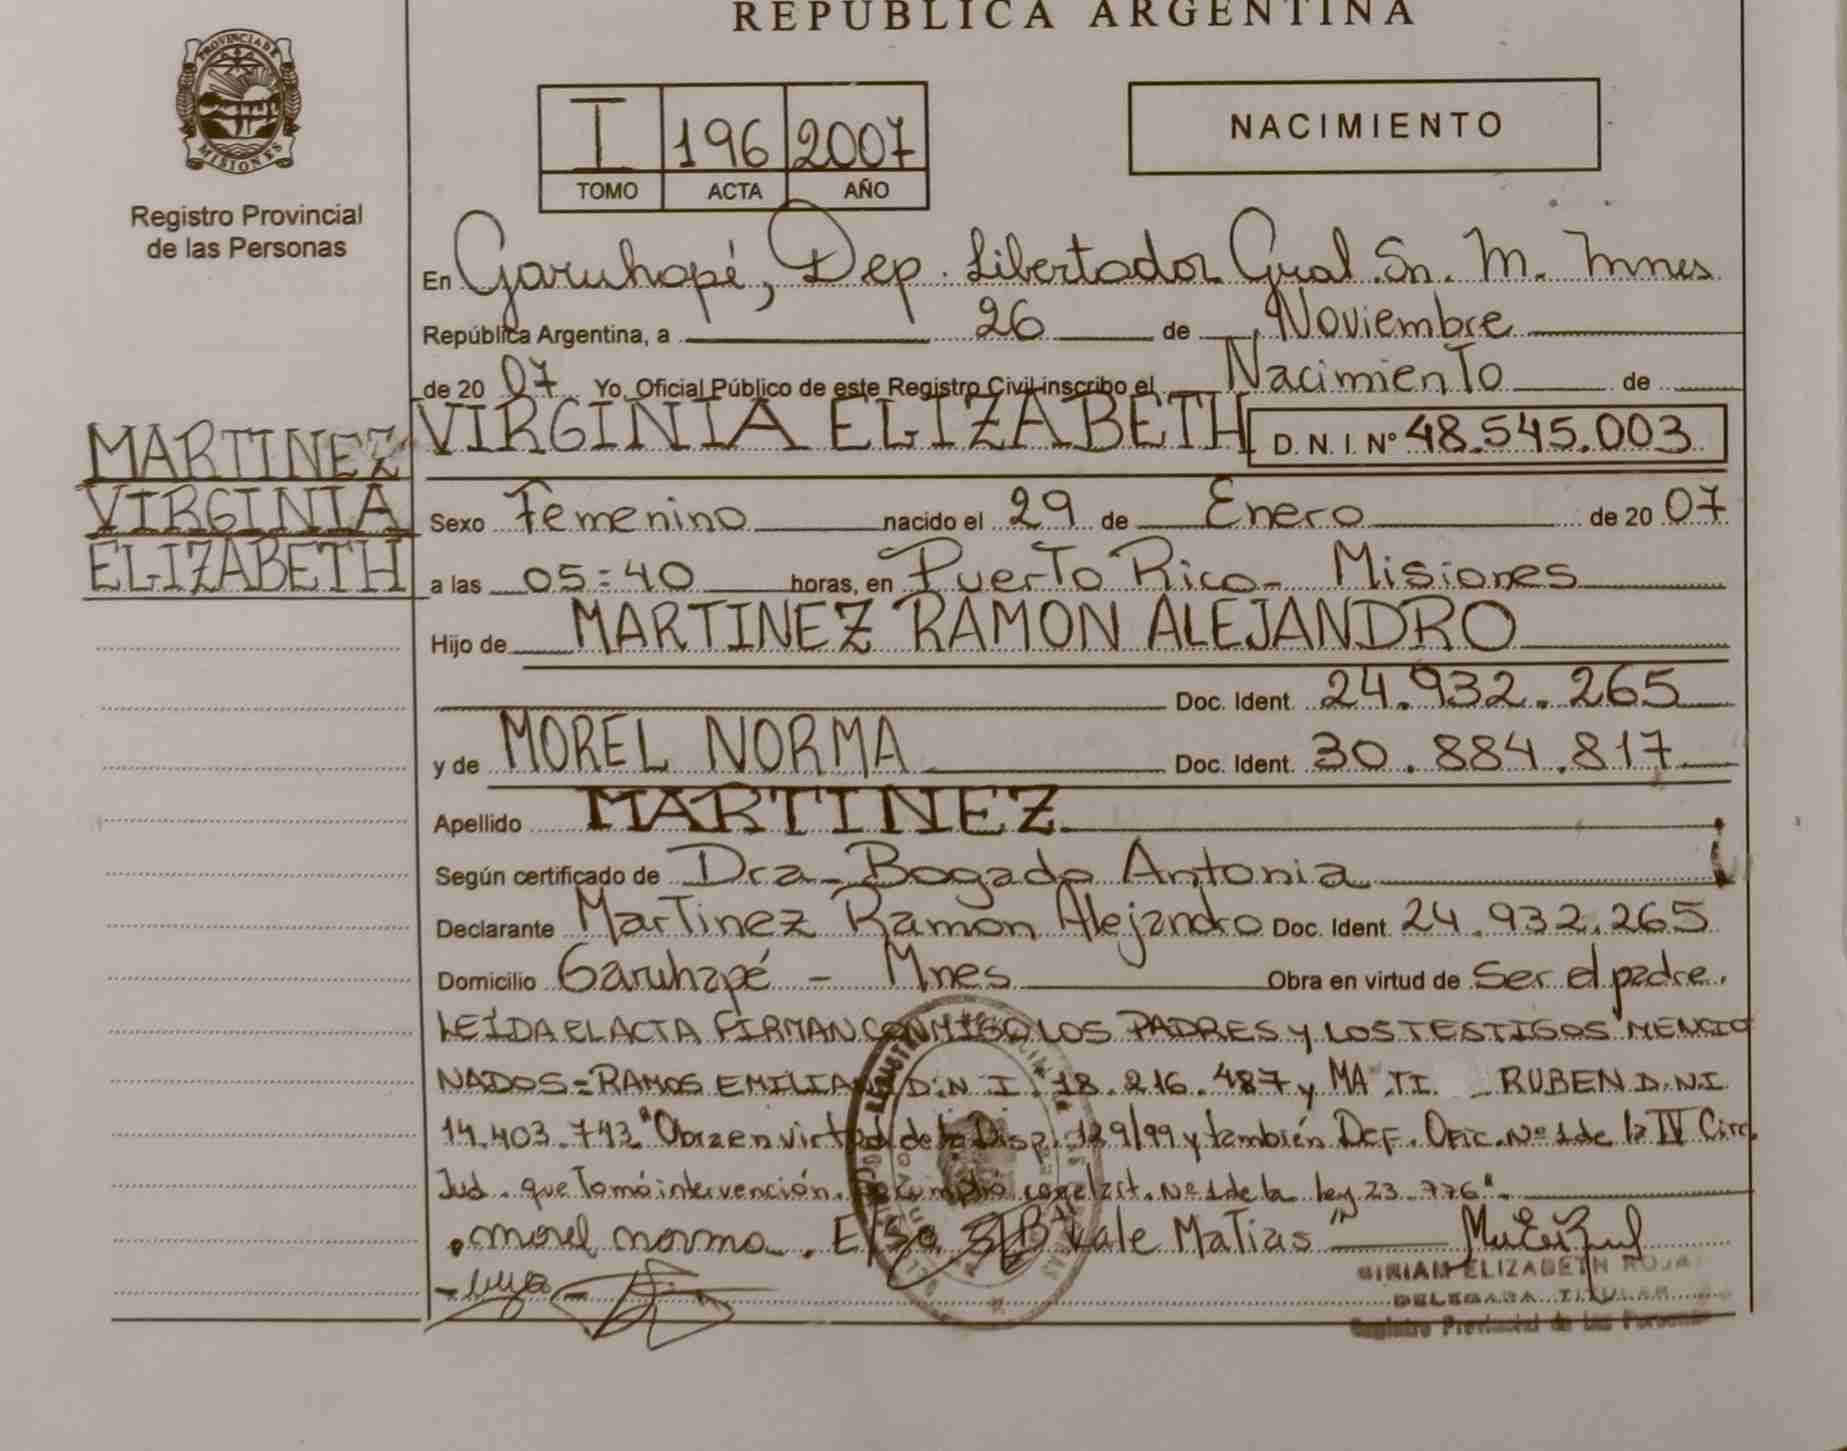 REPUBLICA ARGENTINA
PROVINCIA DE
MISIONES
Registro Provincial
de las Personas
I 196 2007
TOMO ACTA AÑO
NACIMIENTO
En Garuhapé, Dep. Libertador Gral. Sn. M. Mnes
República Argentina, a 26 de Noviembre
de 20 07 Yo, Oficial Público de este Registro Civil inscribo el Nacimiento de
MARTINEZ
VIRGINIA
ELIZABETH
VIRGINIA ELIZABETH D. N. I. Nº 48.545.003
Sexo Femenino nacido el 29 de Enero de 20 07
a las 05:40 horas, en Puerto Rico - Misiones
Hijo de MARTINEZ RAMON ALEJANDRO
Doc. Ident. 24.932.265
y de MOREL NORMA Doc. Ident. 30.884.817
Apellido MARTINEZ
Según certificado de Dra. Bogado Antonia
Declarante Martinez Ramon Alejandro Doc. Ident. 24.932.265
Domicilio Garuhapé - Mnes Obra en virtud de Ser el padre.
LEÍDA EL ACTA FIRMAN CONMIGO LOS PADRES y LOS TESTIGOS MENCIO
NADOS = RAMOS EMILIANO D.N.I. 18.216.487 y MA TI RUBEN D.N.I.
14.403.743 "Obra en virtud de la Disp. 129/99 y también Def. Ofic. Nº 1 de la IV Circ.
Jud. que Tomó intervención. Se cumplió con el art. Nº 1 de la ley 23.776".
morel norma. E/So. Vale Matias"
MIRIAM ELIZABETH ROJAS
DELEGADA TITULAR
Registro Provincial de las Personas